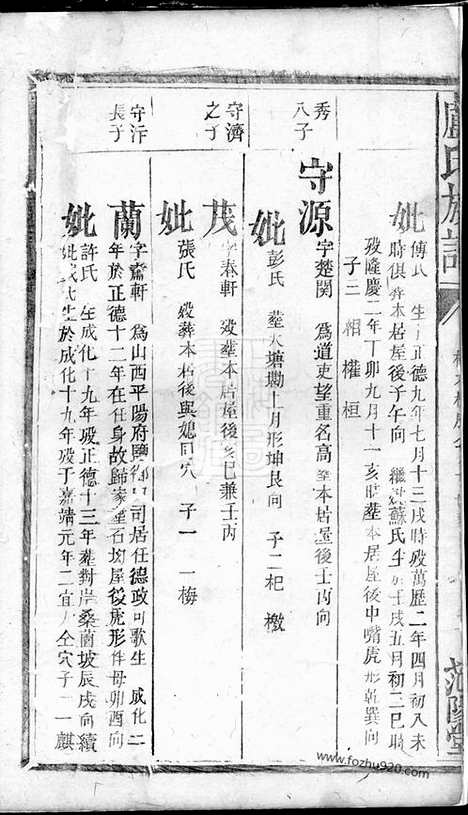 盧氏族譜
范陽堂
妣傅氏 生于正德九年七月十三戌時歿萬歷二年四月初八未
時俱葬本居屋後子午向 繼妣蘇氏生於壬戌五月初二巳時
歿隆慶二年丁卯九月十一亥時葬本居屋後中嘴虎形乾巽向
子三 相 權 桓
秀
八子
守源字楚閣 為道吏望重名高葬本居屋後士丙向
妣彭氏 葬大塘坳上月形坤艮向 子二 杞 檄
守濟
之子
茂字春軒 歿葬本居屋後亥巳兼壬丙
妣張氏 歿葬本居後與媳同穴 子一 一梅
守泝
長子
蘭字齋軒 為山西平陽府 司居任德政可歌生 成化二
年於正德十二年在任身故歸家葬石坳屋後虎形件母卯酉向
妣許氏 生成化十九年歿正德十三年葬對岸桑蘭坡辰戌向續
妣 氏生於成化十九年歿于嘉靖元年二 仝穴子二 一麒
www.fozhu920.com